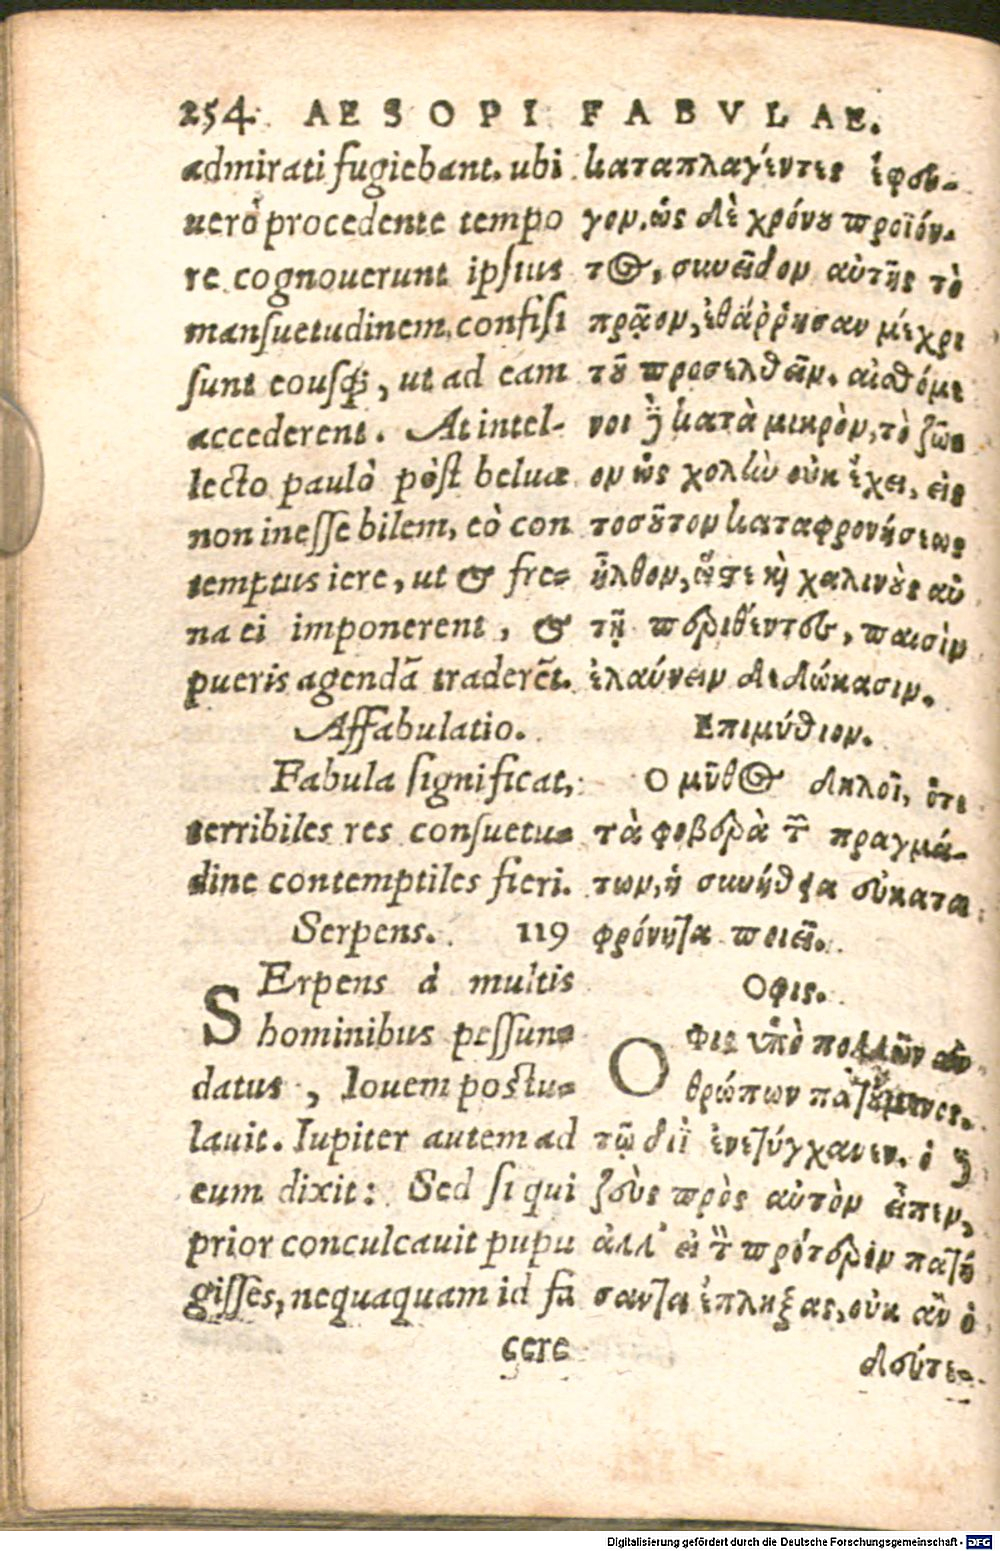 254 AESOPI FABVLAE.
admirati fugiebant. ubi
uerò procedente tempo
re cognouerunt ipsius
mansuetudinem, confisi
sunt eousq;, ut ad eam
accederent. At intel-
lecto paulò pòst beluæ
non inesse bilem, eò con
temptus iere, ut & fre-
na ei imponerent, &
pueris agendã traderẽt.
Affabulatio.
Fabula significat,
terribiles res consuetu-
dine contemptiles fieri.
Serpens. 119
SErpens à multis
hominibus pessun-
datus, Iouem postu-
lauit. Iupiter autem ad
eum dixit: Sed si qui
prior conculcauit pupu
gisses, nequaquam id fa
cere
καταπλαγέντες ἔφευ-
γον. ὡς δὲ χρόνου προϊόν-
τος, συνεῖδον αὐτῆς τὸ
πρᾷον, ἐθάῤῥησαν μέχρι
τοῦ προσελθεῖν. αἰσθόμε
νοι δὲ κατὰ μικρὸν, τὸ ζῶ-
ον ὡς χολὴν οὐκ ἔχει, εἰς
τοσοῦτον καταφρονήσεως
ἦλθον, ὥστε καὶ χαλινοὺς αὐ
τῇ περιθέντες, παισὶν
ἐλαύνειν δεδώκασιν.
Επιμύθιον.
Ο μῦθος δηλοῖ, ὅτι
τὰ φοβερὰ τῶν πραγμά-
των, ἡ συνήθεια εὐκατα
φρόνητα ποιεῖ.
Οφις.
Οφις ὑπὸ πολλῶν ἀν-
θρώπων πατούμενος,
τῷ διῒ ἐνετύγχανεν. ὁ δὲ
ζεὺς πρὸς αὐτὸν εἶπεν,
ἀλλ' εἰ τὸν πρότερον πατή
σαντα ἔπληξας, οὐκ ἂν ὁ
δεύτε-
Digitalisierung gefördert durch die Deutsche Forschungsgemeinschaft - DFG